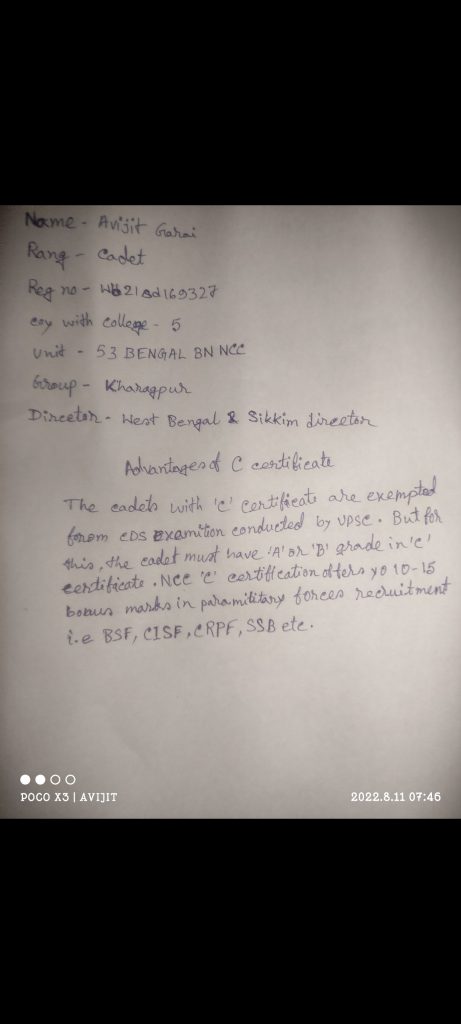 Name - Avijit Garai
Rang - Cadet
Reg no - Wb21sd169327
coy with college - 5
Unit - 53 BENGAL BN NCC
Group - Kharagpur
Director - West Bengal & Sikkim director
Advantages of C certificate
The cadets with 'C' Certificate are exempted
forom CDS Examition conducted by UPSC. But for
this, the cadet must have 'A' or 'B' grade in 'C'
certificate. NCC 'C' certification offers yo 10-15
bonus marks in paramilitary forces recruitment
i.e BSF, CISF, CRPF, SSB etc.
POCO X3 | AVIJIT
2022.8.11 07:46